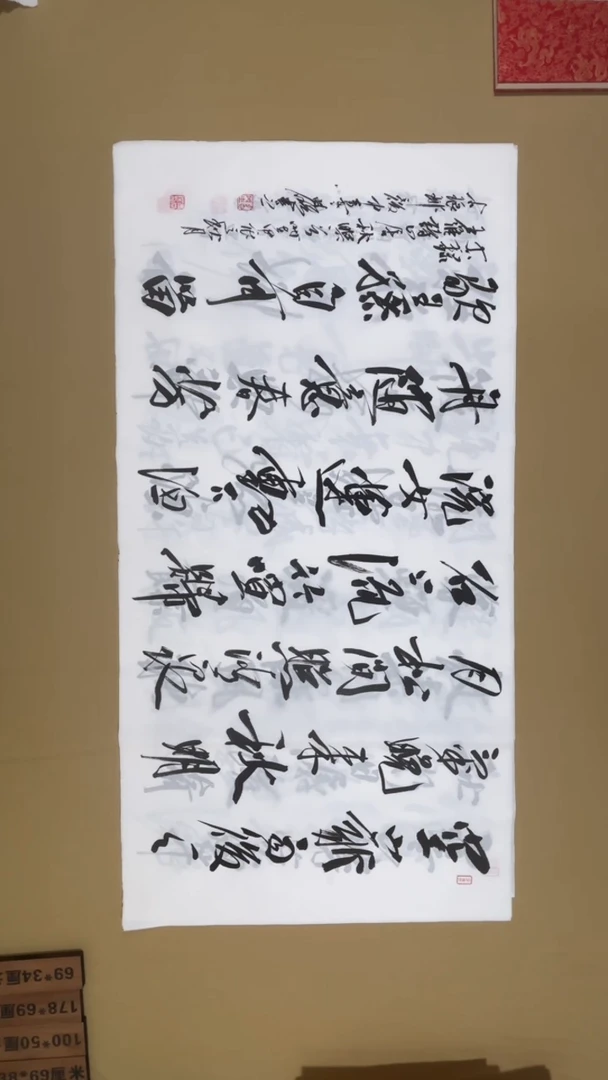 空山新雨後天
氣晚來秋明
月松間照清泉
石上流竹喧歸
浣女蓮動下漁
舟隨意春芳
歇王孫自可留
王維詩山居秋暝
69*34厘
178*69厘
100*50厘